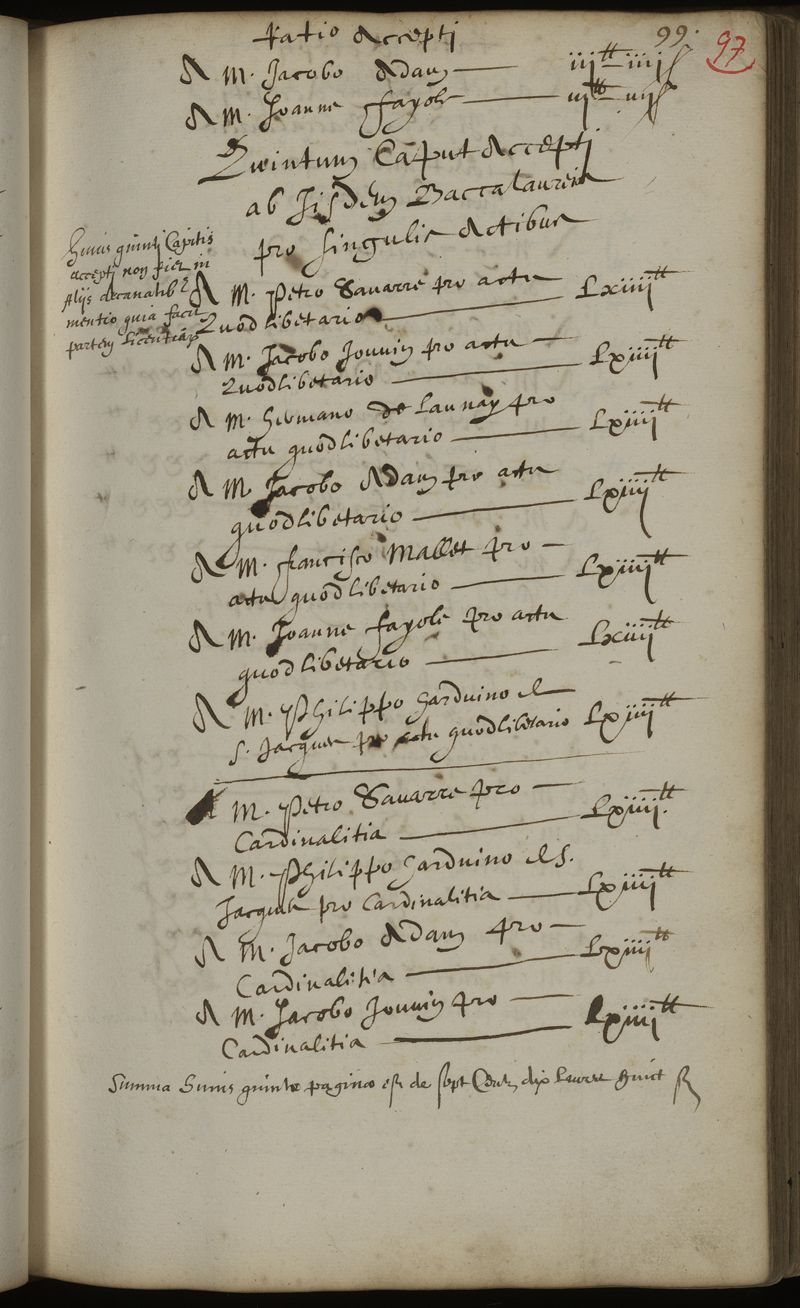 Ratio Accepti 99. 97
A M. Jacobo Adam — iij tt iiij s
A M. Joanne ffayole — iij tt iiij s
Quintum Caput Accepti
ab Jisdem Baccalaureis
pro singulis Actibus
huius quinti Capitis
accepti non fiet in
alijs decanatib
mentio quia facit
partem licentiar
A M. Petro Sauarre pro actu
Quodlibetario — Lxiiij tt
A M. Jacobo Jouuin pro actu —
Quodlibetario — Lxiiij tt
A M. Germano de Launay pro
actu quodlibetario — Lxiiij tt
A M. Jacobo Adam pro actu
quodlibetario — Lxiiij tt
A M. francisco Mallet pro —
actu quodlibetario — Lxiiij tt
A M. Joanne fayole pro actu
quodlibetario — Lxiiij tt
A M. Philippo harduino de
S. Jacques pro actu quodlibetario Lxiiij tt
A M. Petro Sauarre pro —
Cardinalitia — Lxiiij tt
A M. Philippo harduino de S.
Jacques pro Cardinalitia — Lxiiij tt
A M. Jacobo Adam pro —
Cardinalitia — Lxiiij tt
A M. Jacobo Jouuin pro —
Cardinalitia — Lxiiij tt
Summa huius quintæ paginæ est de sept Cens dix liures huict s